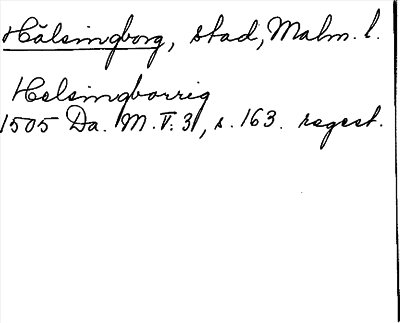 Hälsingborg, stad, Malm. l.
Helsingborrig
1505 Da. M. V: 3, s. 163. regest.